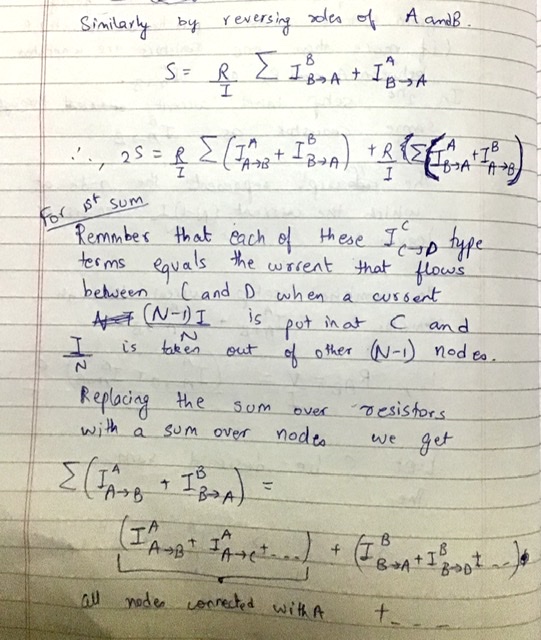 Similarly by reversing roles of A and B.
S = R/I Σ I^B_{B→A} + I^A_{B→A}
∴, 2S = R/I Σ (I^A_{A→B} + I^B_{B→A}) + R/I {Σ(I^A_{B→A} + I^B_{A→B})
For 1st sum
Remmber that each of these I^C_{C→D} type
terms equals the current that flows
between C and D when a current
(N-1)I/N is put in at C and
I/N is taken out of other (N-1) nodes.
Replacing the sum over resistors
with a sum over nodes we get
Σ(I^A_{A→B} + I^B_{B→A}) =
(I^A_{A→B} + I^A_{A→C} + ....) + (I^B_{B→A} + I^B_{B→D} + ...)
all nodes connected with A + - - -